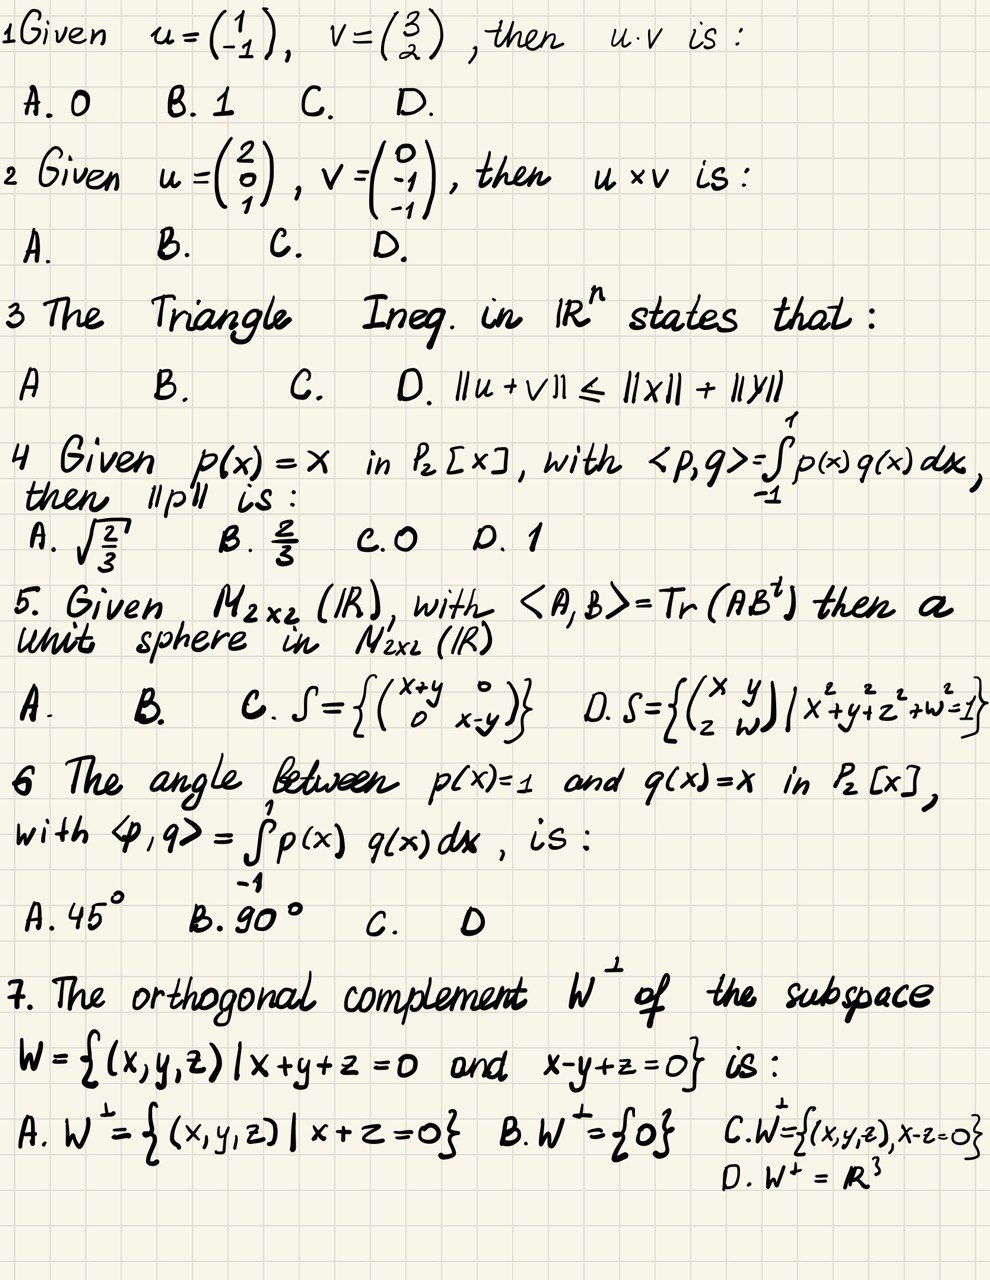 1 Given u = (1 -1), v = (3 2), then u·v is :
A. 0 B. 1 C. D.
2 Given u = (2 0 1), v = (0 -1 -1), then u × v is :
A. B. C. D.
3 The Triangle Ineq. in ℝⁿ states that :
A B. C. D. ||u + v|| ≤ ||x|| + ||y||
4 Given p(x) = x in P₂[x], with <p,q> = ∫₋₁¹ p(x) q(x) dx,
then ||p|| is :
A. √(2/3) B. 2/3 C. 0 D. 1
5. Given M₂ₓ₂ (ℝ), with <A,B> = Tr (ABᵗ) then a
unit sphere in M₂ₓ₂ (ℝ)
A. B. C. S = {(x+y 0 0 x-y)} D. S = {(x y z w) | x²+y²+z²+w²=1}
6 The angle between p(x)=1 and q(x)=x in P₂[x],
with <p,q> = ∫₋₁¹ p(x) q(x) dx, is :
A. 45° B. 90° C. D
7. The orthogonal complement W⊥ of the subspace
W = {(x,y,z) | x+y+z=0 and x-y+z=0} is :
A. W⊥ = {(x,y,z) | x+z=0} B. W⊥ = {0} C. W⊥={(x,y,z), x-z=0}
D. W⊥ = ℝ³